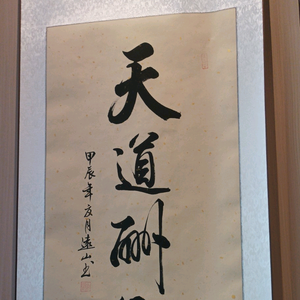 天道酬
甲辰年夏月遠山书